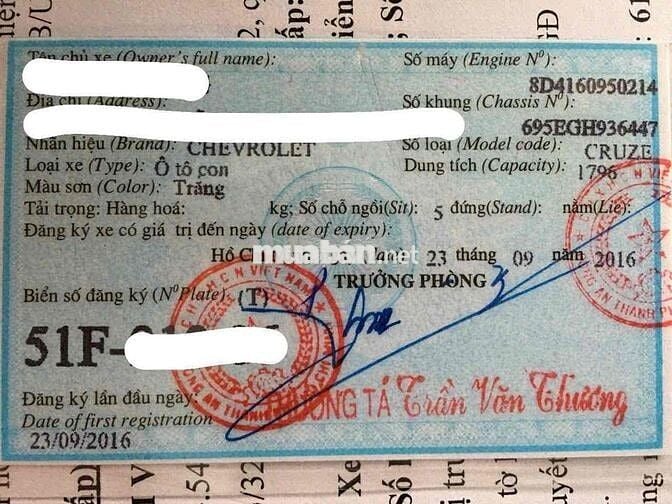 Tên chủ xe (Owner's full name):
Số máy (Engine Nº):
8D4160950214
Địa chỉ (Address):
Số khung (Chassis Nº):
695EGH936447
Nhãn hiệu (Brand): CHEVROLET
Số loại (Model code): CRUZE
Loại xe (Type): Ô tô con
Dung tích (Capacity): 1796
Màu sơn (Color): Trắng
Tải trọng: Hàng hoá: kg; Số chỗ ngồi(Sit): 5 đứng(Stand): nằm(Lie):
Đăng ký xe có giá trị đến ngày (date of expiry):
Hồ Ch 23 tháng 09 năm 2016
muaban.net
TRƯỞNG PHÒNG
Biển số đăng ký (Nº Plate) (T)
51F-
Đăng ký lần đầu ngày
Date of first registration
23/09/2016
THƯỢNG TÁ Trần Văn Thương